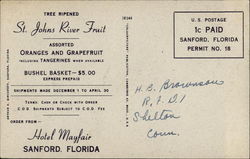 TREE RIPENED
St. Johns River Fruit
ASSORTED
ORANGES AND GRAPEFRUIT
INCLUDING TANGERINES WHEN AVAILABLE
BUSHEL BASKET—$5.00
EXPRESS PREPAID
SHIPMENTS MADE DECEMBER 1 TO APRIL 30
TERMS: CASH OR CHECK WITH ORDER
C.O.D. SHIPMENTS SUBJECT TO C.O.D. FEE
ORDER FROM—
Hotel Mayfair
SANFORD, FLORIDA
U. S. POSTAGE
1c PAID
SANFORD, FLORIDA
PERMIT NO. 18
H. B. Brownson
R. F. D. 1
Shelton
Conn.